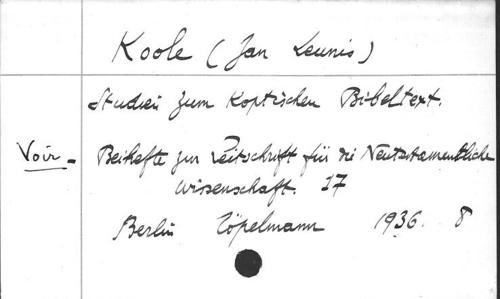 Koole (Jan Leunis)
Studien zum Koptischen Bibeltext.
Voir - Beihefte zur Zeitschrift für die Neutestamentliche
Wissenschaft. 17
Berlin Töpelmann 1936. 8